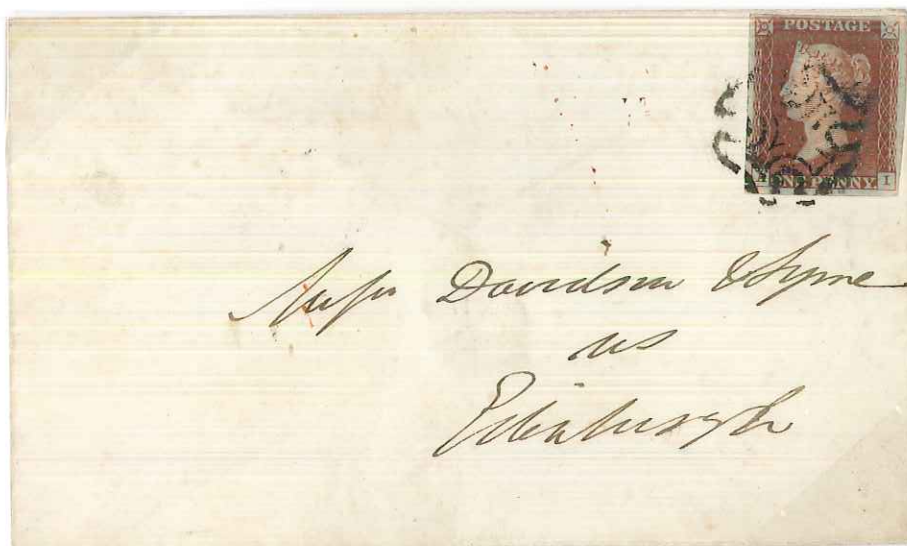 POSTAGE
ONE PENNY I
Messrs Davidson & Syme
WS
Edinburgh